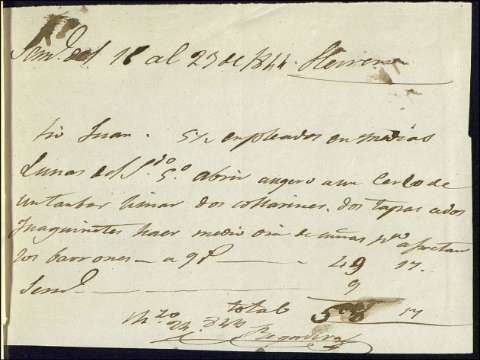 Semª. del 18 al 23 de 1844. Herrera
tio Juan. 5 ½ enpleados en medias
Lunas del Sdo. 5º abrir augero a un Cerlo de
un tanbar limar dos collarines, dos tapas a dos
maquinetes haer medio dia de cuñas pª apretar
los barrones - a 9 r 49 17..
Semª 9
total 58 17
Mzo
24. 844